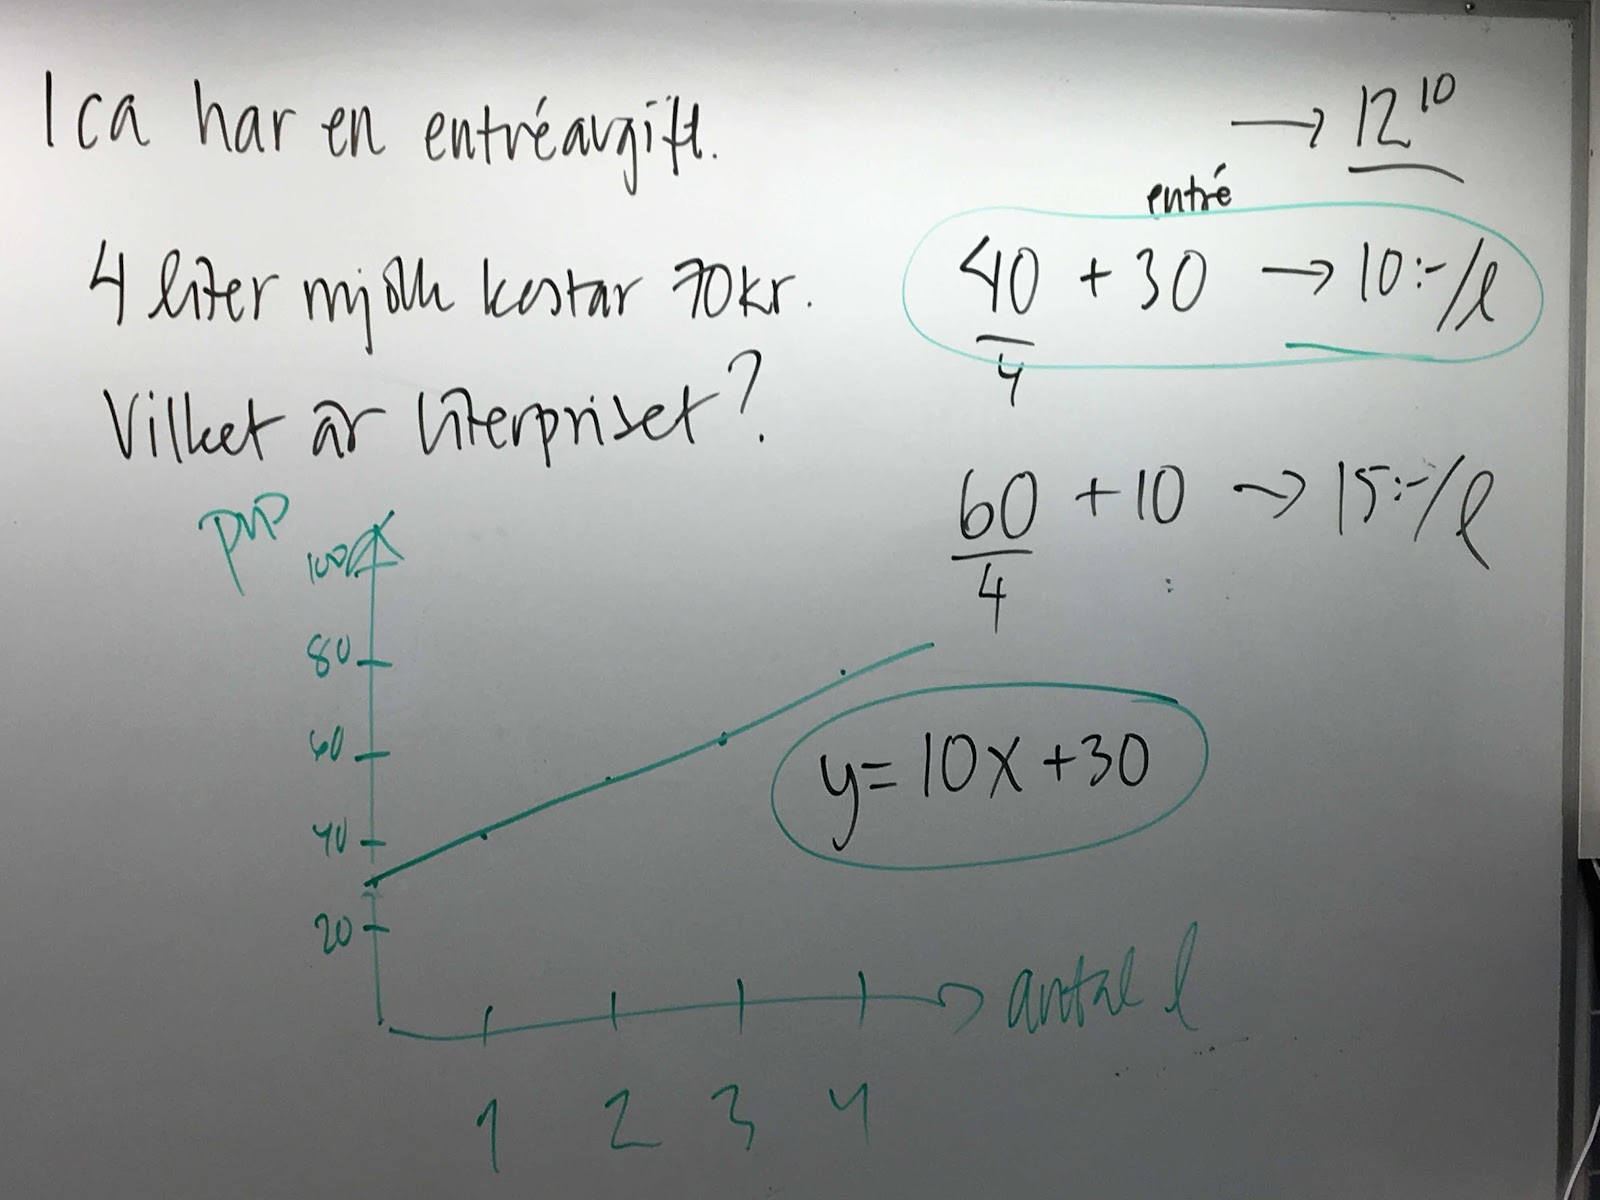 Ica har en entréavgift.
4 liter mjölk kostar 70kr.
Vilket är literpriset?
→ 12¹⁰
entré
40 + 30 → 10:-/l
4
60 + 10 → 15:-/l
4
100
80
60
40
20
y=10x+30
antal l
1 2 3 4